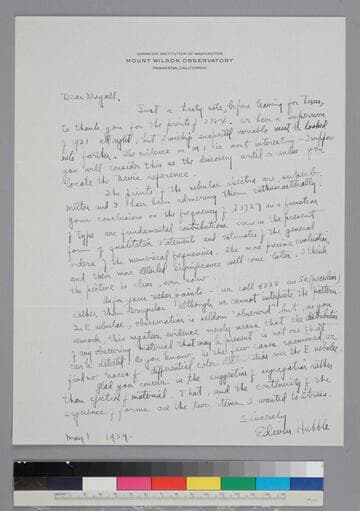 CARNEGIE INSTITUTION OF WASHINGTON
MOUNT WILSON OBSERVATORY
PASADENA, CALIFORNIA
Dear Mayall,
Just a hasty note, before leaving for Texas,
to thank you for the prints of 3184. We have a supernova
of 1921 all right, but Zwicky's suspected variable must be looked
into further. The evidence on M 1 is most interesting. I suppose
you will consider this as the discovery until or unless you
locate the reference.
The prints of the nebular spectra are superb.
Miller and I have been admiring them enthusiastically.
Your conclusions on the frequency of λ3727 as a function
of type are fundamental contributions, even in the present
form of qualitative statements and estimates of the general
orders of the numerical frequencies. The more precise evaluation
and their more detailed significances will come later. I think
the picture is clear, even now.
As for your other points - we call 5038 an Sa (peculiar)
rather than irregular although we cannot interpret the pattern.
In E nebulae, obscuration is seldom "observed" but, as you
remark, this negative evidence merely means that the distribution
of any obscuring material that may be present is not one that
can be detected. As you know, in the few cases examined, we
find no traces of differential color absorption over the E nebulae.
Glad you concur in the suggestion of segregation rather
than ejection of material. That, and the continuity of the
sequence of forms, are the two items I wanted to stress.
Sincerely
Edwin Hubble
May 1 1939-